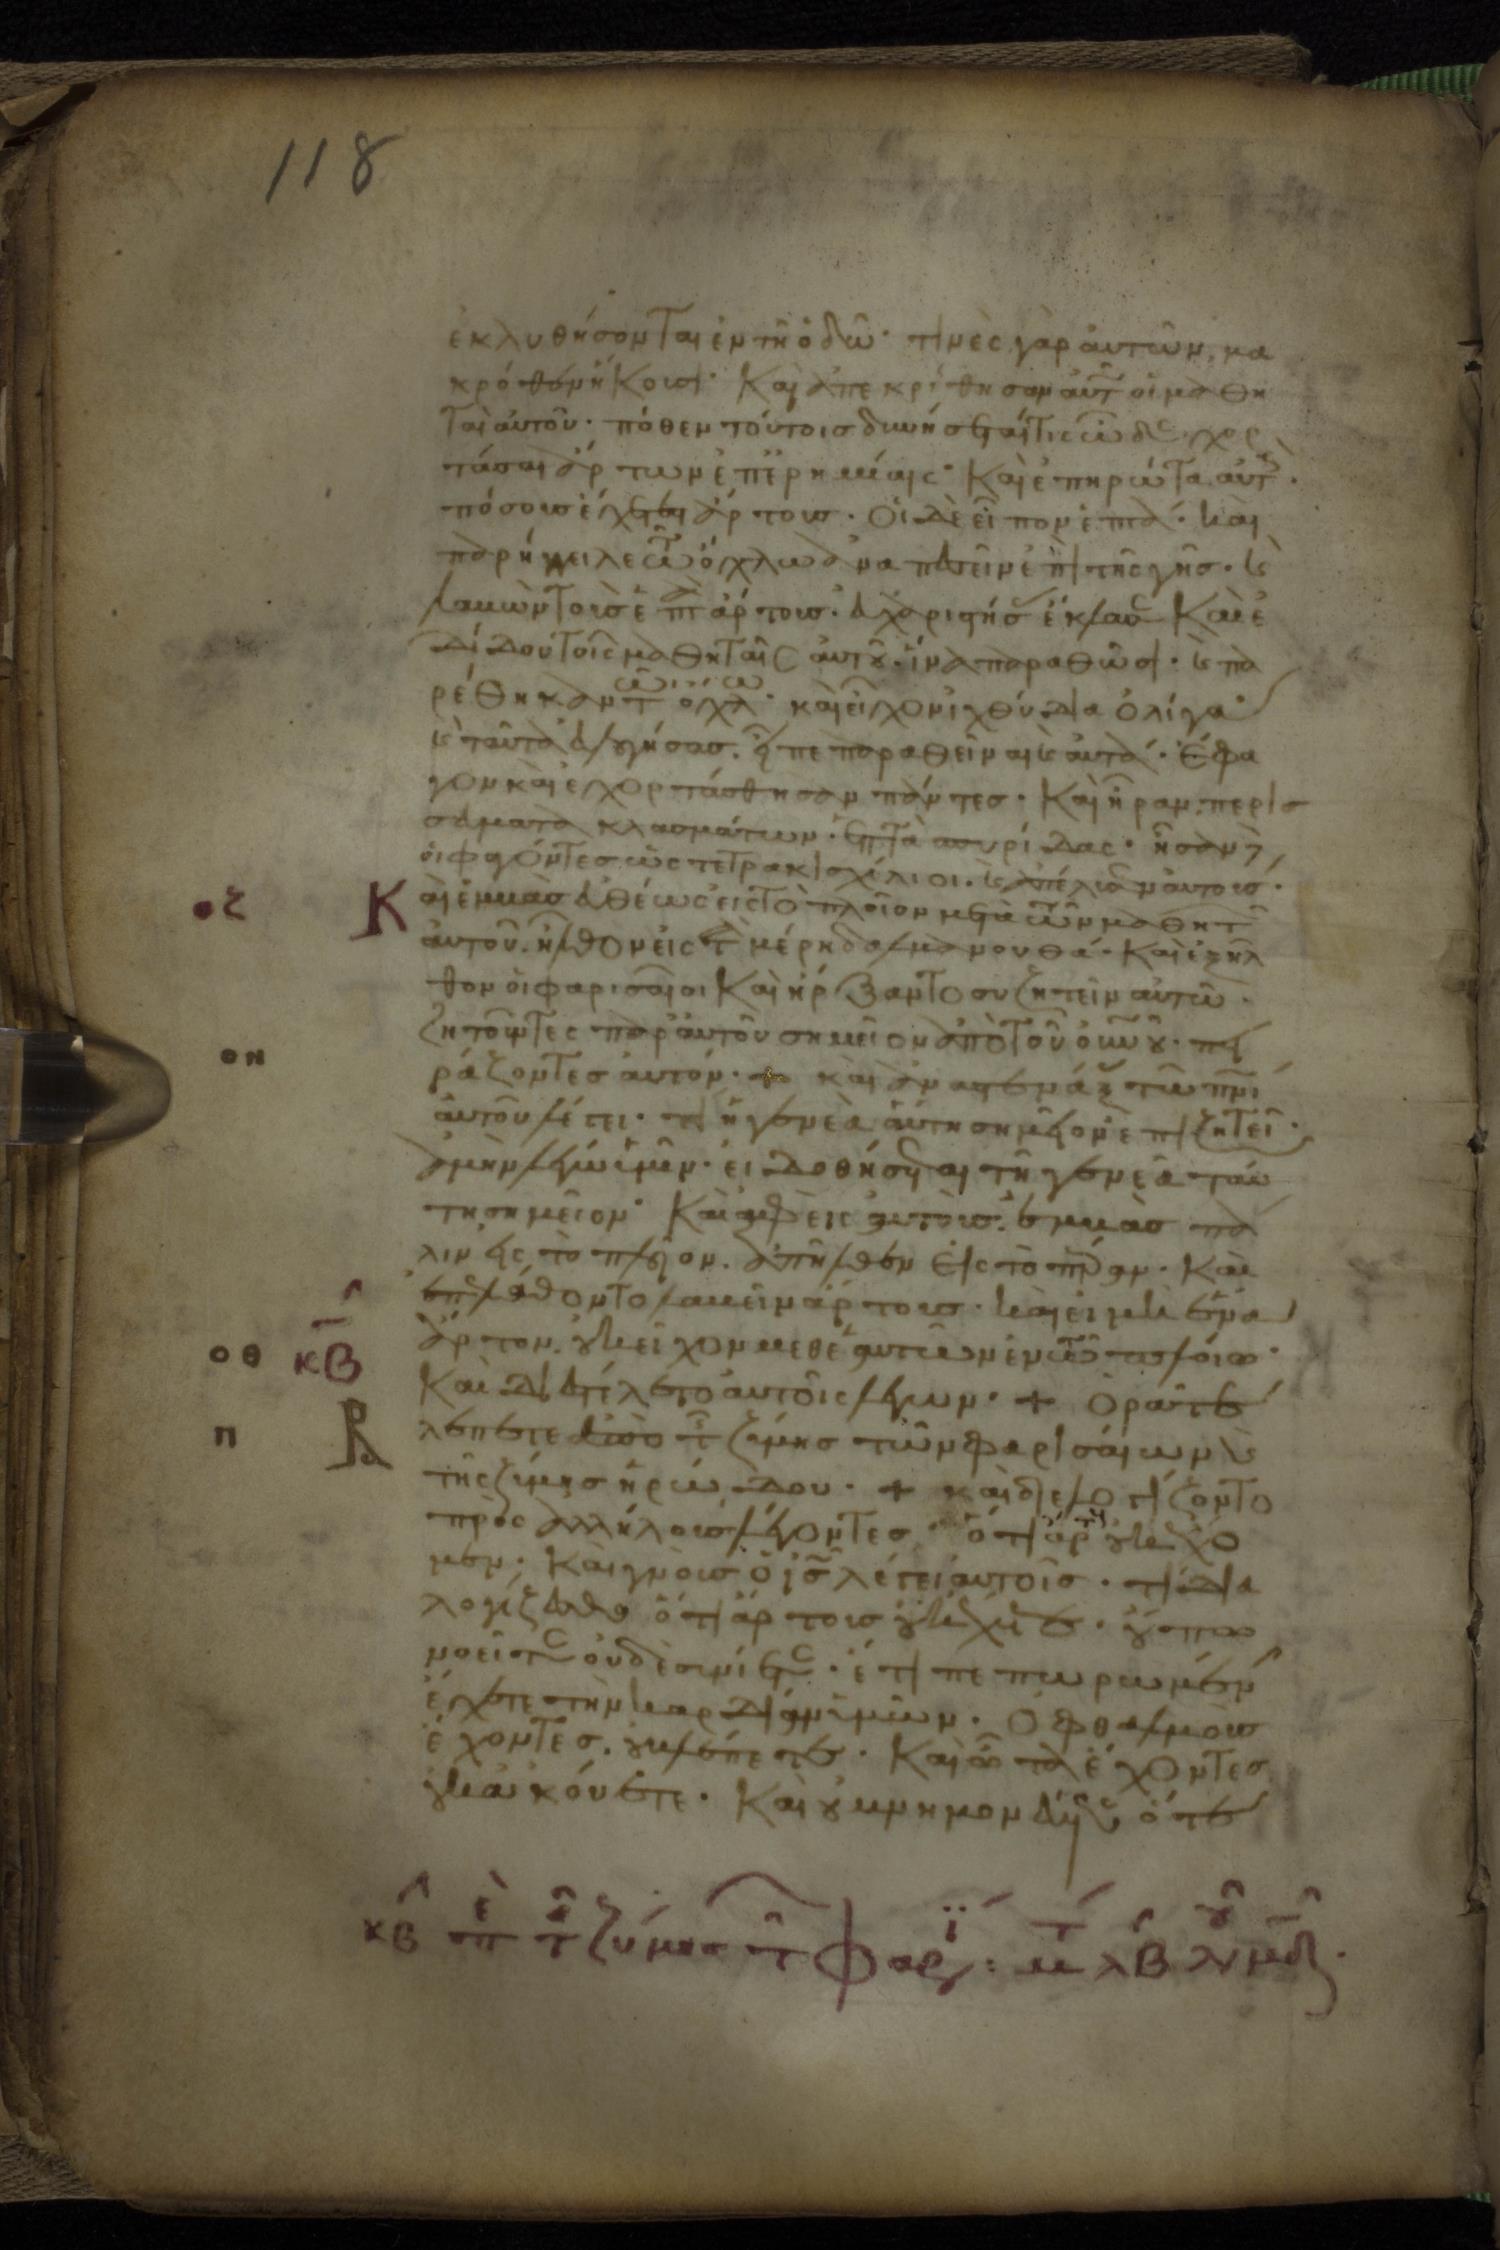 118
ἐκλυθήσονται ἐν τῆ ὁδῶ· τινὲς γὰρ αὐτῶν μα
κρόθεν ἥκουσι· Καὶ ἀπεκρίθησαν αὐτ οἱ μαθη
ταὶ αὐτοῦ· πόθεν τούτους δυνήσεταί τις ὧδε χορ
τάσαι ἄρτων ἐπ ἐρημίαις· Καὶ ἐπηρώτα αὐτ·
πόσους ἔχεται ἄρτους· Οἱ δὲ εἶπον ἑπτά· καὶ
παρήγγειλε τῶ ὄχλω ἀναπεσεῖν ἐπὶ τῆς γῆς· κ
λαβὼν τοὺς ἑπτ ἄρτους· εὐχαριστήσ ἔκλασ Καὶ ἐ
δίδου τοῖς μαθηταῖς αὐτοῦ· ἵνα παραθῶσι· κ πα
ρέθηκαν τ ὄχλ· καὶ εἶχον ἰχθύδια ὀλίγα·
κ ταῦτα εὐλογήσας· εἶπε παραθεῖναι κ αὐτά· Ἔφα
γον καὶ ἐχορτάσθησαν πάντες· Καὶ ἦραν περισ
σεύματα κλασμάτων· ἑπτὰ σπυρίδας· ἦσαν δ
οἱ φαγόντες ὡς τετρακισχίλιοι· κ ἀπέλυσεν αὐτούς·
οζ Καὶ ἐμβὰς εὐθέως εἰς τὸ πλοῖον μετὰ τῶν μαθητ
αὐτοῦ· ἦλθεν εἰς τ μέρη δαλμανουθά· Καὶ ἐξῆλ
θον οἱ φαρισαῖοι Καὶ ἤρξαντο συζητεῖν αὐτῶ·
οη ζητοῦντες παρ αὐτοῦ σημεῖον ἀπὸ τοῦ οὐνου· πει
ράζοντες αὐτόν· + καὶ ἀναστενάξ τῶ πνι
αὐτοῦ λέγει· τί ἡ γενεὰ αὕτη σημεῖον ἐπιζητεῖ·
ἀμὴν λέγω ὑμῖν· εἰ δοθήσεται τῆ γενεᾶ ταύ
τη σημεῖον· Καὶ ἀφεὶς αὐτοὺς· ἐμβὰς πά
λιν εἰς τὸ πλοῖον· ἀπῆλθεν εἰς τὸ πέραν· Καὶ
ἐπελάθοντο λαβεῖν ἄρτους· καὶ εἰ μὴ ἕνα
οθ κβ ἄρτον· οὐκ εἶχον μεθ ἑαυτῶν ἐν τῶ πλοίω·
Καὶ διεστέλλετο αὐτοῖς λέγων· + Ὁρᾶτε
π βλέπετε ἀπὸ τ ζύμης τῶν φαρισαίων κ
τῆς ζύμης ἡρώδου· + καὶ διελογίζοντο
πρὸς ἀλλήλους λέγοντες· ὅτι ἄρτ οὐκ ἔχο
μεν· Καὶ γνοὺς ὁ ις λέγει αὐτοῖς· τί δια
λογίζεσθε ὅτι ἄρτους οὐκ ἔχετε· οὔπω
νοεῖτε οὐδὲ συνίετε· ἔτι πεπωρωμένην
ἔχετε τὴν καρδίαν ὑμῶν· Ὀφθαλμοὺς
ἔχοντες· οὐ βλέπετε· Καὶ ὦτα ἔχοντες
οὐκ ἀκούετε· Καὶ οὐ μνημονεύετε ὅτε
κβ περὶ τ ζύμης τ φαρι : μ λβ λου μδ·